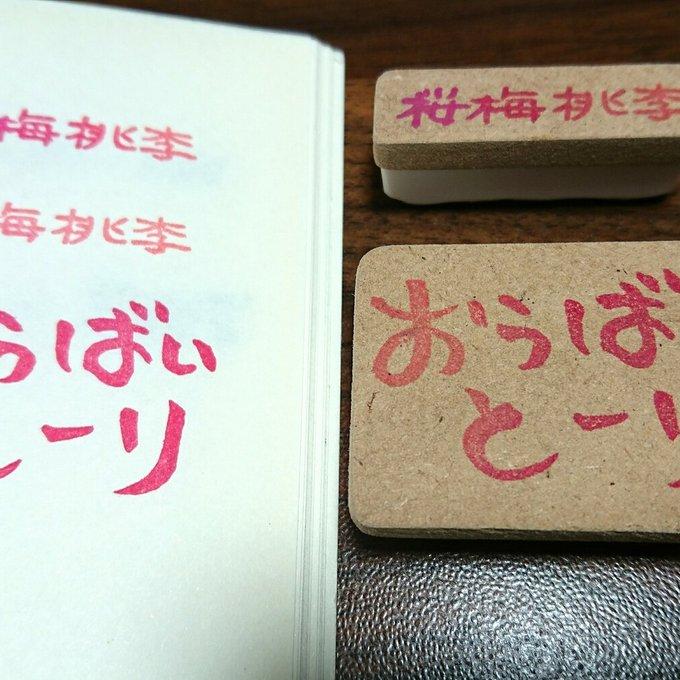 梅桃李
梅桃李
うばい
とーり
桜梅桃李
おうばい
とーり